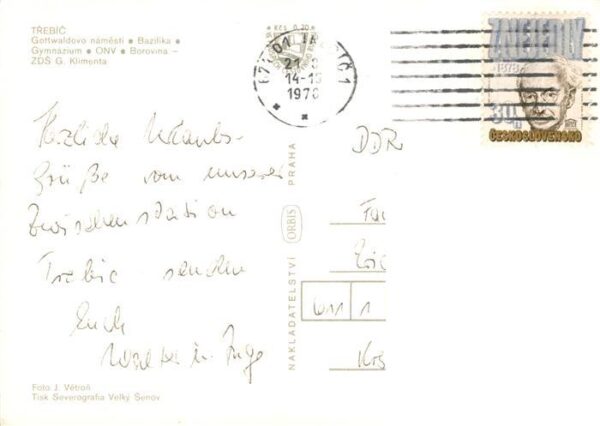 TŘEBÍČ
Gottwaldovo náměstí • Bazilika •
Gymnázium • ONV • Borovina –
ZDŠ G. Klimenta
Kčs 0,20
14-15
1978
1878
30h
ČESKOSLOVENSKO
Herzliche Urlaubs-
grüße von unserer
Zwischenstation
Trebic senden
Euch
Walter u. Inge
DDR
Fa
611 1
NAKLADATELSTVÍ ORBIS PRAHA
Foto J. Větroň
Tisk Severografia Velký Šenov